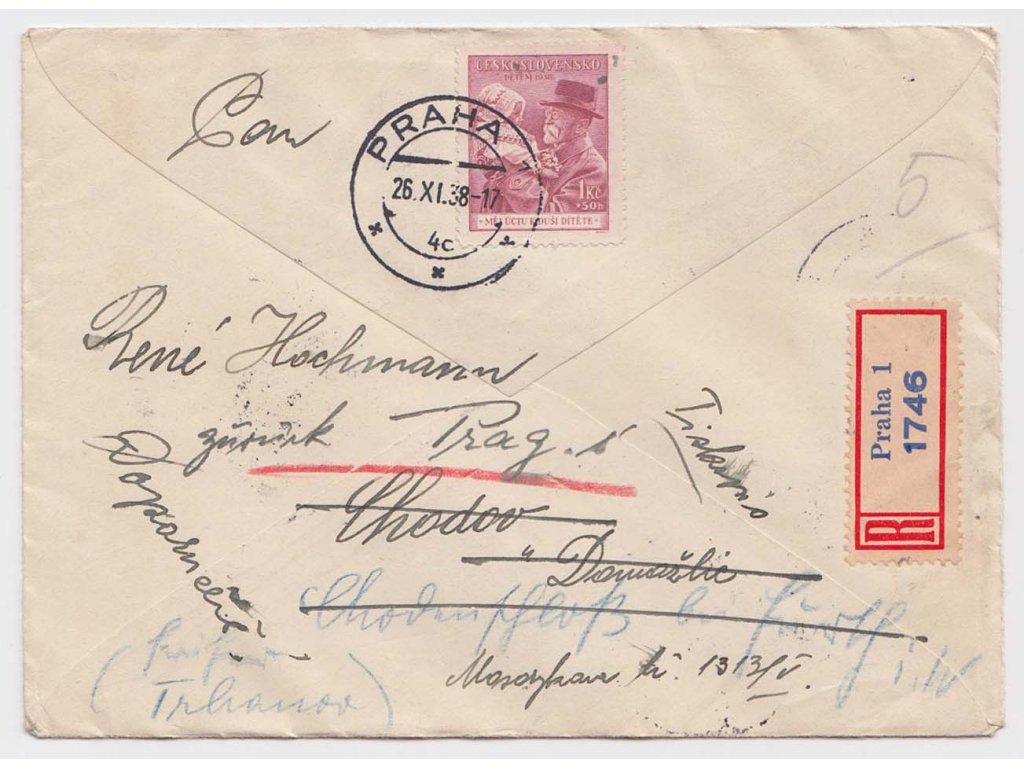 ČESKOSLOVENSKO
DĚTEM 1938
1 Kč
+50h
MĚJ ÚCTU K DUŠI DÍTĚTE
PRAHA 1
26.XI.38-17
4c
Pan
5
René Hochmann
zurück Prag. 1
Tiskopis
Doporučeně
Chodov
u Domažlic
Chodenschloß bei Furth i. W
Masarykova tř. 1313/V.
(früher
Trhanov)
Praha 1
1746
R